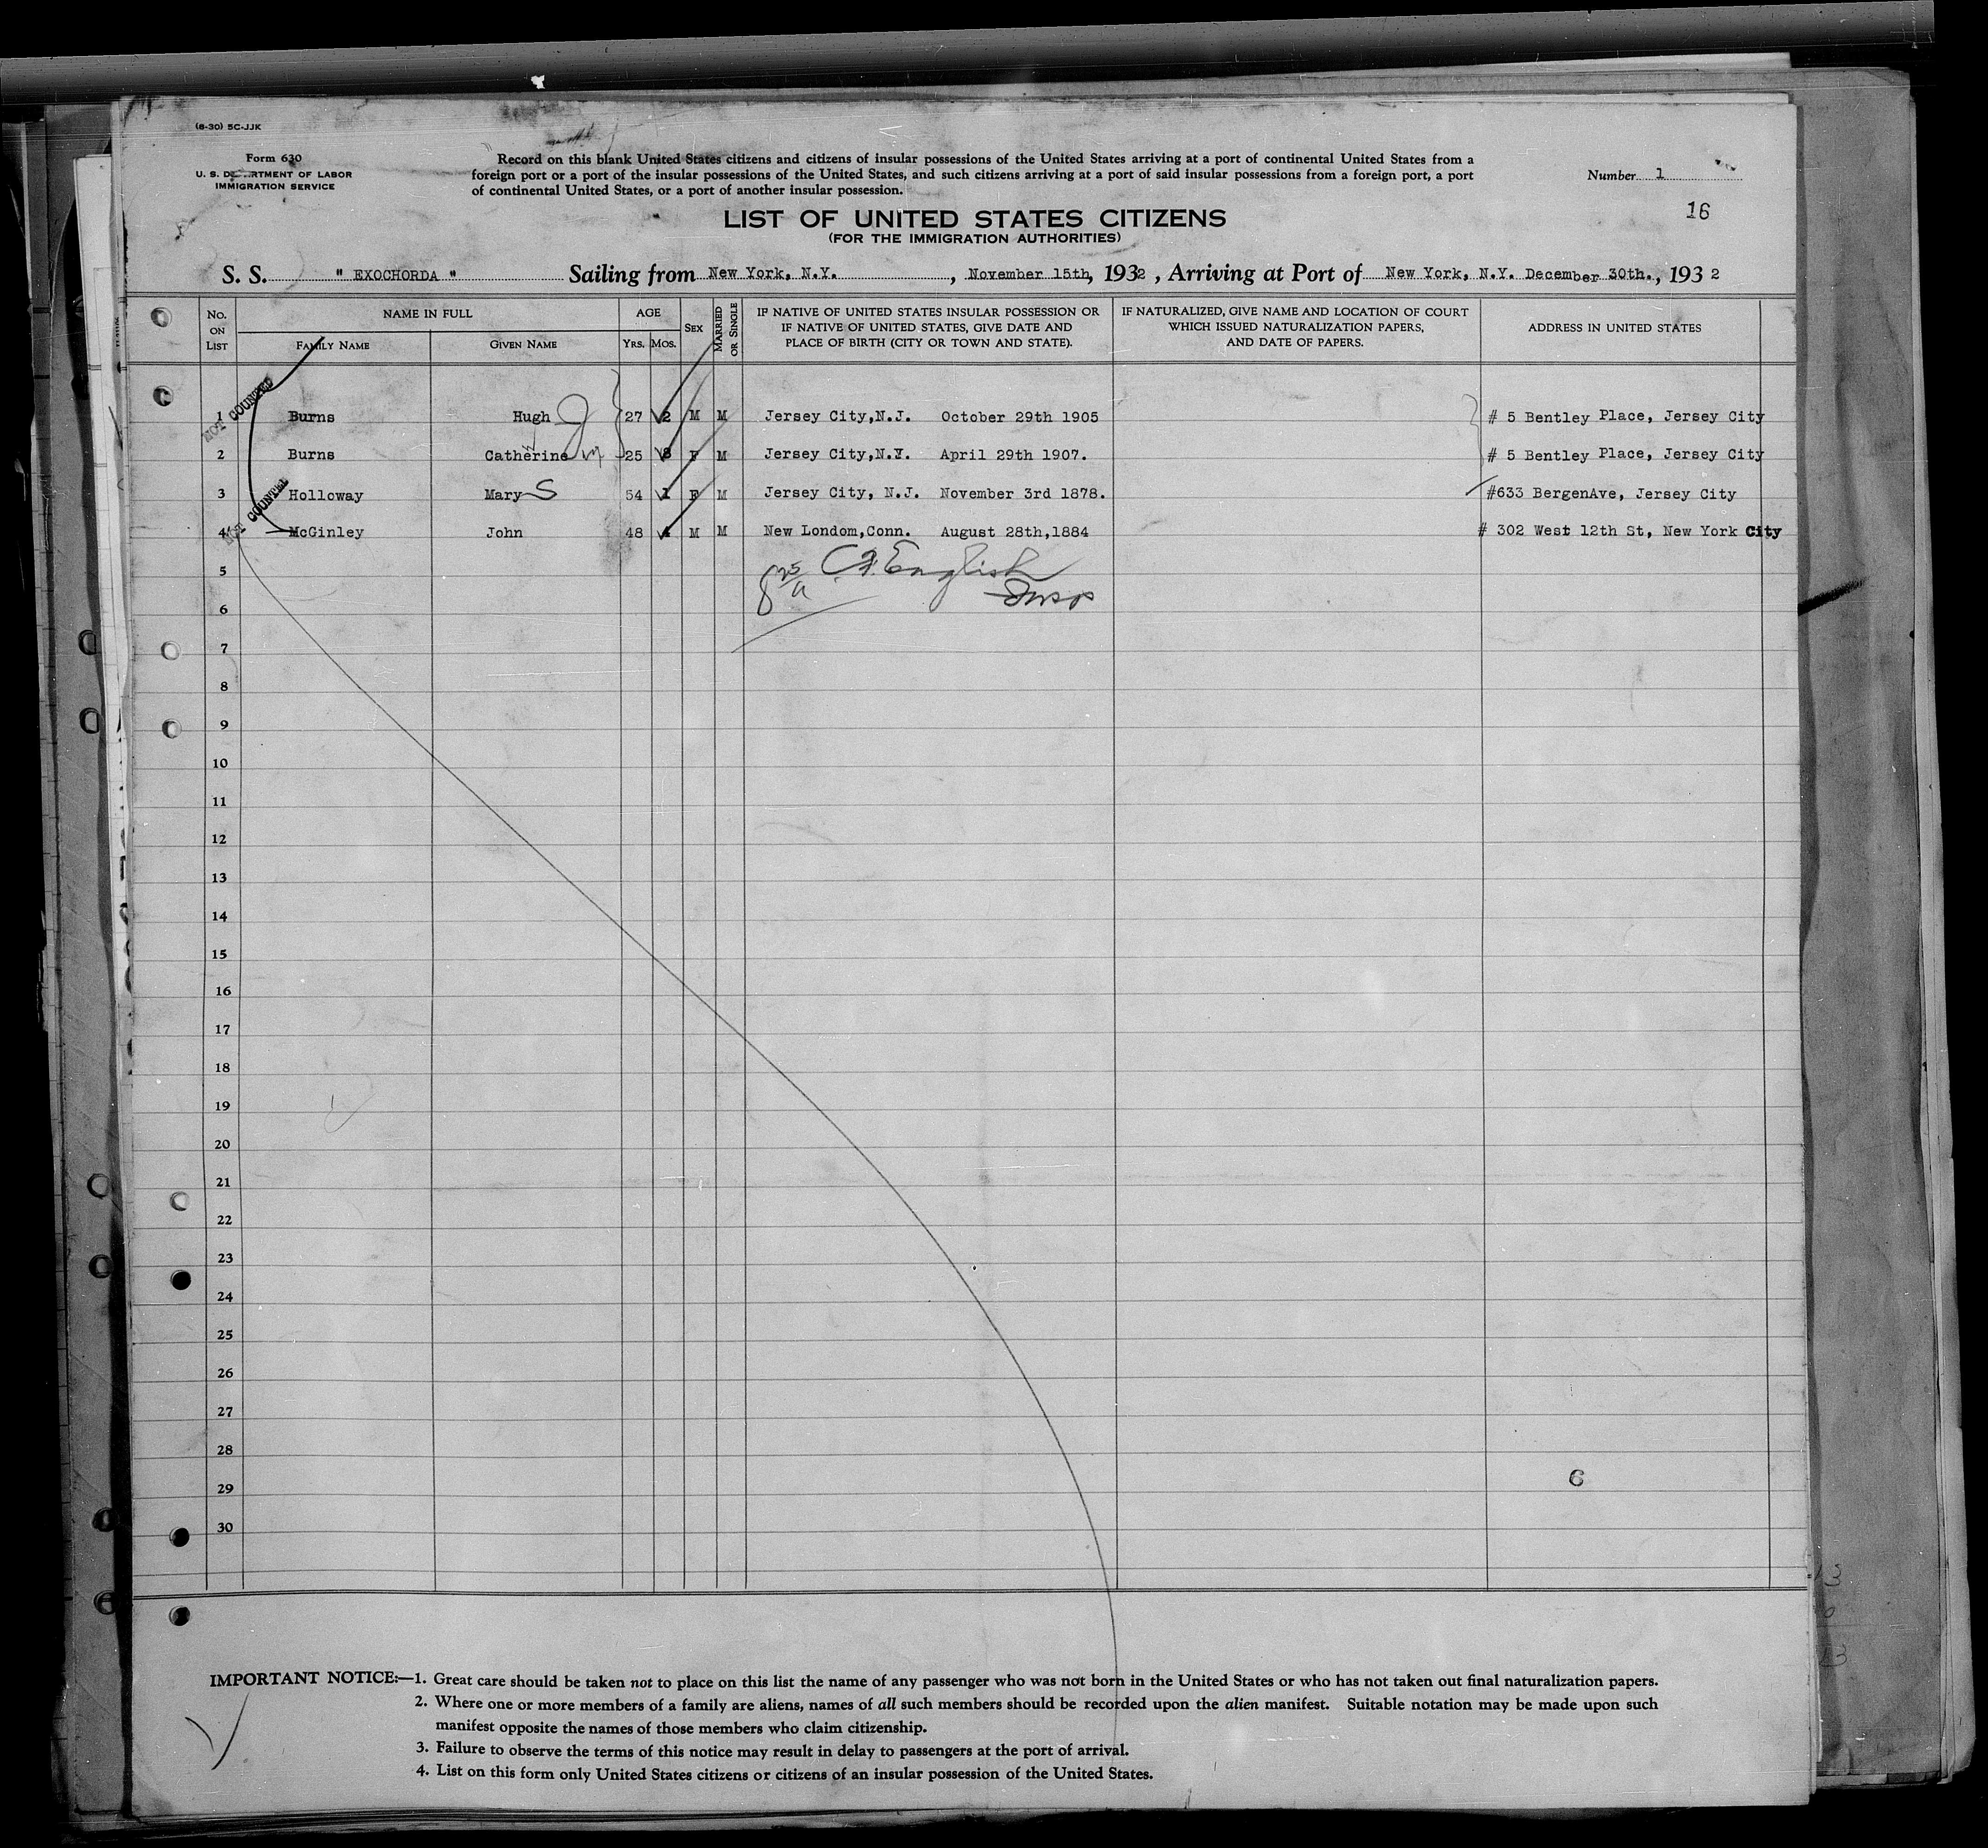 (8-30) 5C-JJK
Form 630
U. S. DEPARTMENT OF LABOR
IMMIGRATION SERVICE
Record on this blank United States citizens and citizens of insular possessions of the United States arriving at a port of continental United States from a
foreign port or a port of the insular possessions of the United States, and such citizens arriving at a port of said insular possessions from a foreign port, a port
of continental United States, or a port of another insular possession.
Number 1
16
LIST OF UNITED STATES CITIZENS
(FOR THE IMMIGRATION AUTHORITIES)
S. S. " EXOCHORDA " Sailing from New York, N.Y. , November 15th, 1932 , Arriving at Port of New York, N.Y. December 30th., 193 2
No. ON LIST NAME IN FULL AGE SEX MARRIED OR SINGLE IF NATIVE OF UNITED STATES INSULAR POSSESSION OR IF NATIVE OF UNITED STATES, GIVE DATE AND PLACE OF BIRTH (CITY OR TOWN AND STATE). IF NATURALIZED, GIVE NAME AND LOCATION OF COURT WHICH ISSUED NATURALIZATION PAPERS, AND DATE OF PAPERS. ADDRESS IN UNITED STATES
FAMILY NAME GIVEN NAME YRS. MOS.
NOT COUNTED
1 Burns Hugh J 27 2 M M Jersey City,N.J. October 29th 1905 # 5 Bentley Place, Jersey City
2 Burns Catherine M 25 8 F M Jersey City,N.Y. April 29th 1907. # 5 Bentley Place, Jersey City
3 Holloway Mary S 54 1 F M Jersey City, N.J. November 3rd 1878. #633 BergenAve, Jersey City
NOT COUNTED
4 McGinley John 48 4 M M New Londom,Conn. August 28th,1884 # 302 West 12th St, New York City
5 C.F. English
6 Insp
7
8
9
10
11
12
13
14
15
16
17
18
19
20
21
22
23
24
25
26
27
28
29 6
30
IMPORTANT NOTICE:—1. Great care should be taken not to place on this list the name of any passenger who was not born in the United States or who has not taken out final naturalization papers.
2. Where one or more members of a family are aliens, names of all such members should be recorded upon the alien manifest. Suitable notation may be made upon such
manifest opposite the names of those members who claim citizenship.
3. Failure to observe the terms of this notice may result in delay to passengers at the port of arrival.
4. List on this form only United States citizens or citizens of an insular possession of the United States.